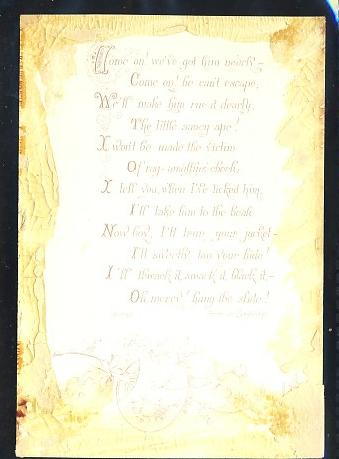 Come on! we've got him nearly –
Come on! he can't escape,
We'll make him rue it dearly,
The little saucy ape!
I won't be made the victim
Of rag-amuffin's cheek,
I tell you, when I've licked him,
I'll take him to the beak
Now boy, I'll your jacket –
I'll sweetly tan your hide!
I'll thwack it, smack it, black it –
Oh mercy! hang the slide!